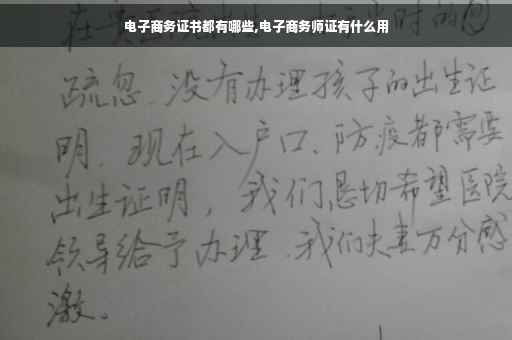 电子商务证书都有哪些,电子商务师证有什么用
疏忽、没有办理孩子的出生证
明、现在入户口、防疫都需要
出生证明，我们恳切希望医院
领导给予办理、我们夫妻万分感
激。